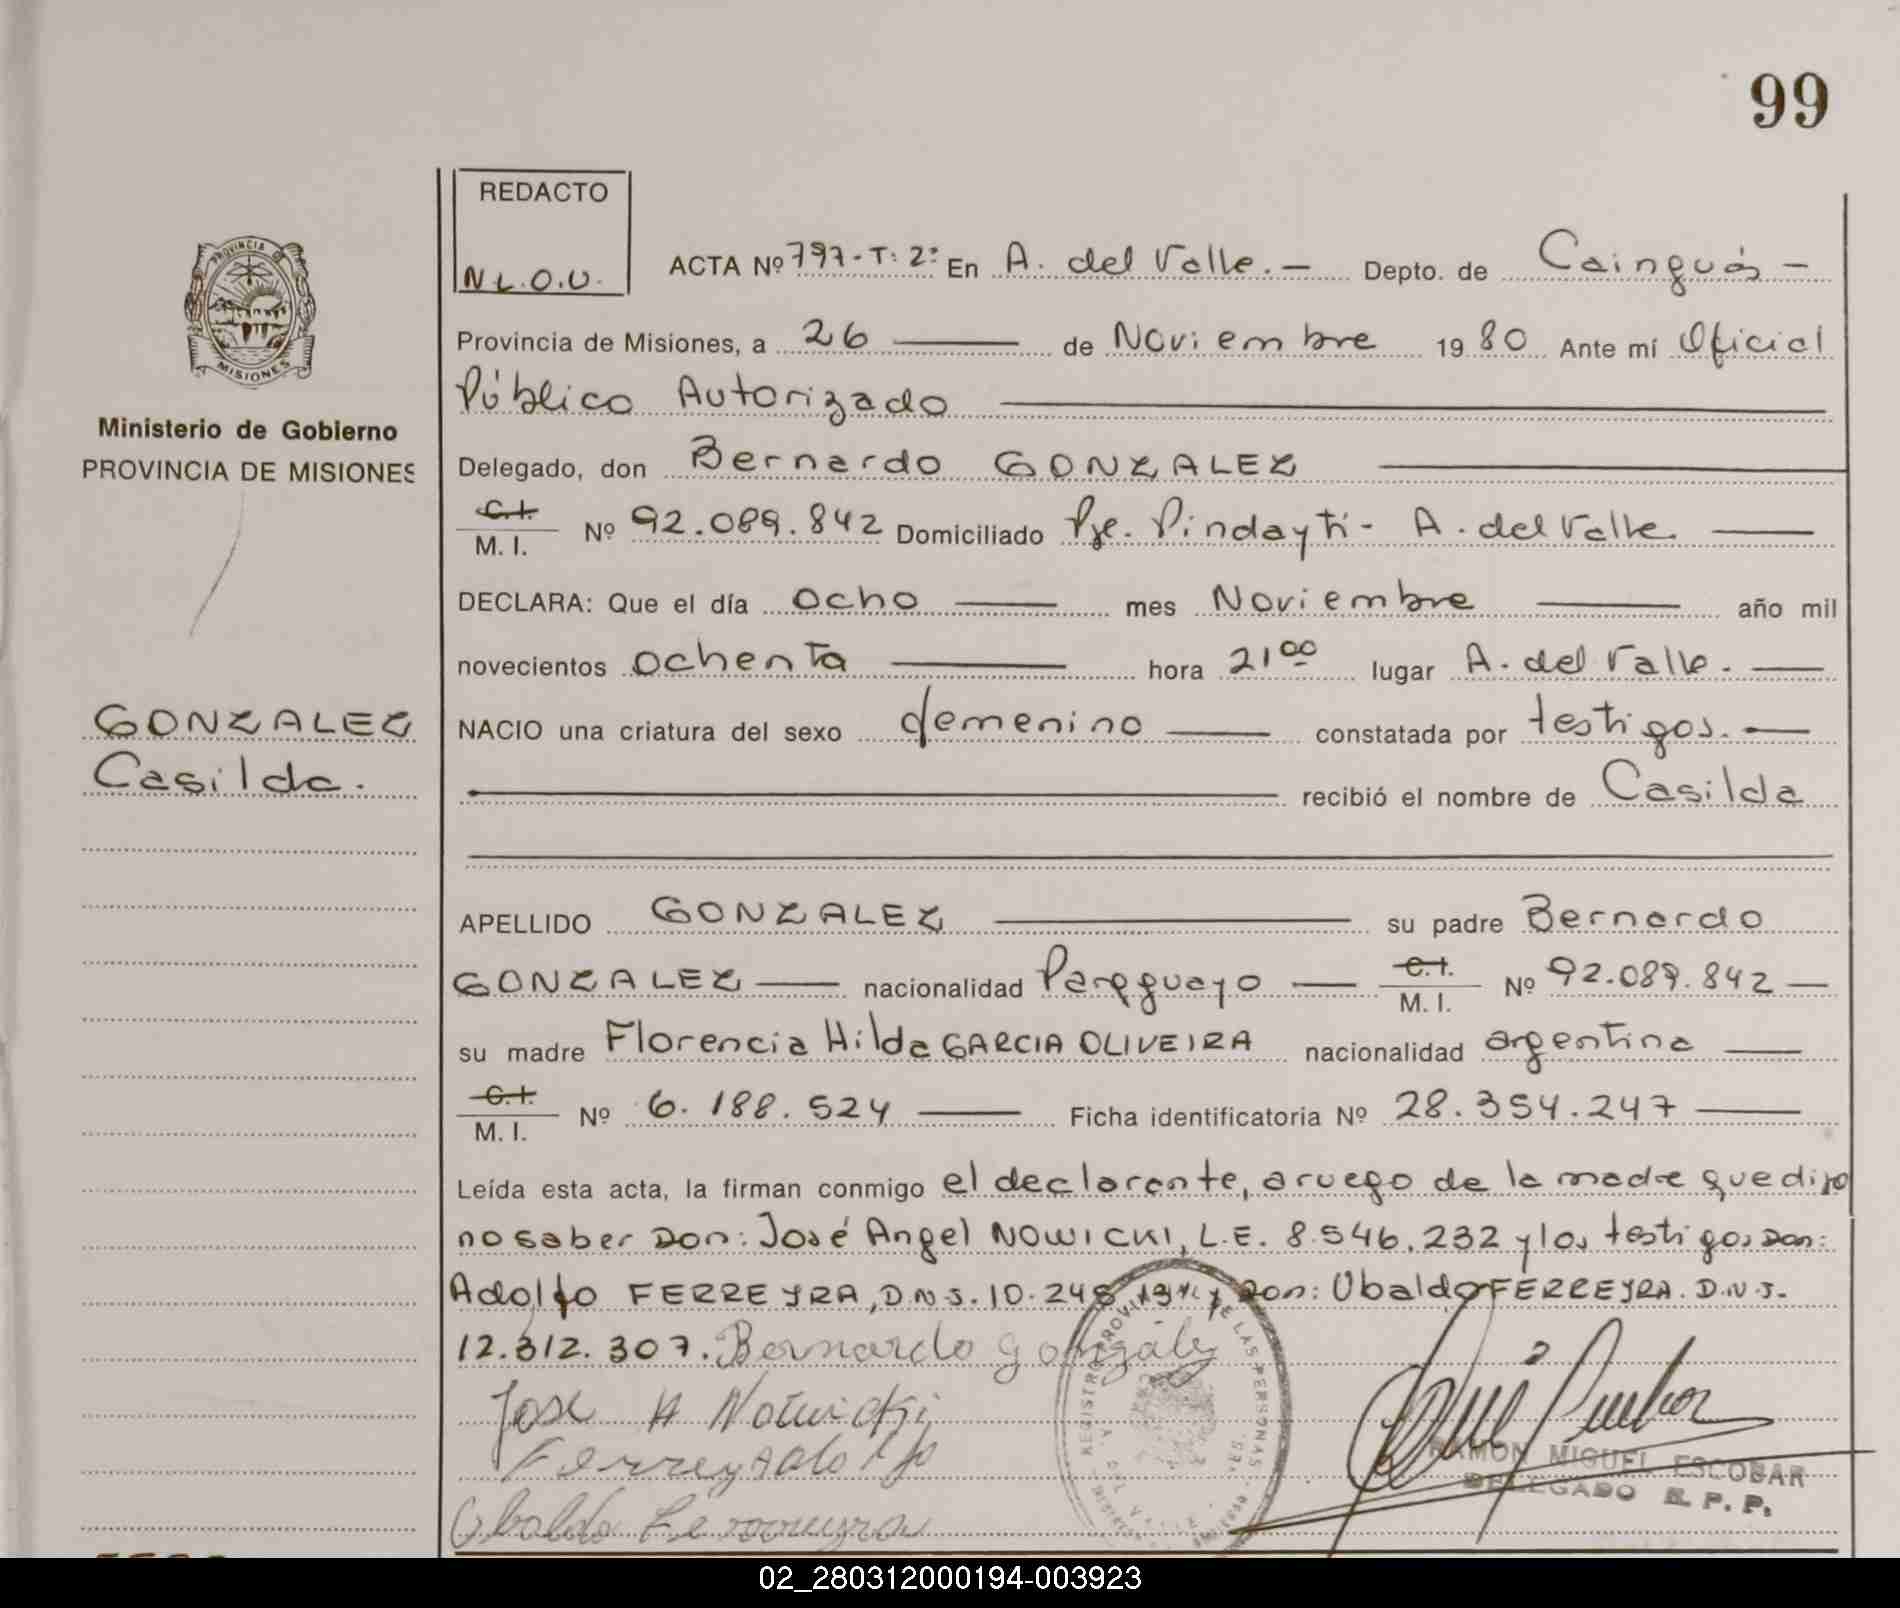 99
REDACTO
N.L.O.U.
PROVINCIA DE
MISIONES
Ministerio de Gobierno
PROVINCIA DE MISIONES
GONZALEZ
Casilda.
ACTA Nº 797-T: 2º En A. del Valle. — Depto. de Cainguás —
Provincia de Misiones, a 26 — de Noviembre 19 80 Ante mí Oficial
Público Autorizado —
Delegado, don Bernardo GONZALEZ —
C.I. M. I. Nº 92.089.842 Domiciliado Pje. Pindaytí - A. del Valle. —
DECLARA: Que el día ocho — mes Noviembre — año mil
novecientos ochenta — hora 21⁰⁰ lugar A. del Valle. —
NACIO una criatura del sexo femenino — constatada por testigos. —
— recibió el nombre de Casilda
APELLIDO GONZALEZ — su padre Bernardo
GONZALEZ — nacionalidad Paraguayo — C.I. M. I. Nº 92.089.842 —
su madre Florencia Hilda GARCIA OLIVEIRA nacionalidad argentina —
C.I. M. I. Nº 6.188.524 — Ficha identificatoria Nº 28.354.247 —
Leída esta acta, la firman conmigo el declarante, a ruego de la madre que dijo
no saber Don: José Angel NOWICKI, L.E. 8.546.232 y los testigos Don:
Adolfo FERREYRA, D.N.J. 10.248. y Don: Ubaldo FERREYRA. D.N.J.
12.312.307. Bernardo Gonzáles
Jose A Nowicki
Ubaldo Ferreyra
REGISTRO PROVINCIAL DE LAS PERSONAS
RAMON MIGUEL ESCOBAR
DELEGADO R. P. P.
02_280312000194-003923